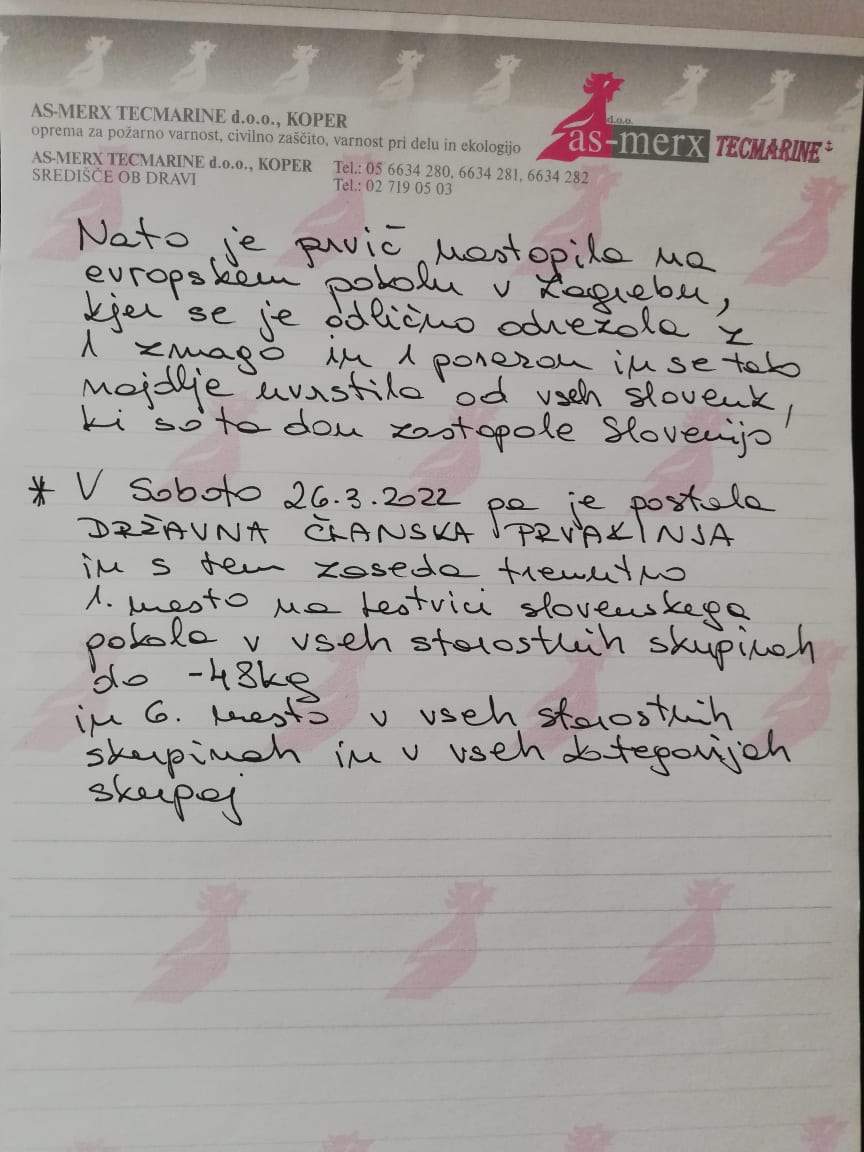 AS-MERX TECMARINE d.o.o., KOPER
oprema za požarno varnost, civilno zaščito, varnost pri delu in ekologijo
AS-MERX TECMARINE d.o.o., KOPER Tel.: 05 6634 280, 6634 281, 6634 282
SREDIŠČE OB DRAVI Tel.: 02 719 05 03
d.o.o.
as-merx TECMARINE
Nato je prvič nastopila na
evropskem pokalu v Zagrebu,
kjer se je odlično odrezala z
1 zmago in 1 porazom in se tako
najdlje uvrstila od vseh slovenk,
ki so ta dan zastopale Slovenijo
* V Soboto 26.3.2022 pa je postala
DRŽAVNA ČLANSKA PRVAKINJA
in s tem zaseda trenutno
1. mesto na lestvici slovenskega
pokala v vseh starostnih skupinah
do -48kg
in 6. mesto v vseh starostnih
skupinah in v vseh kategorijah
skupaj